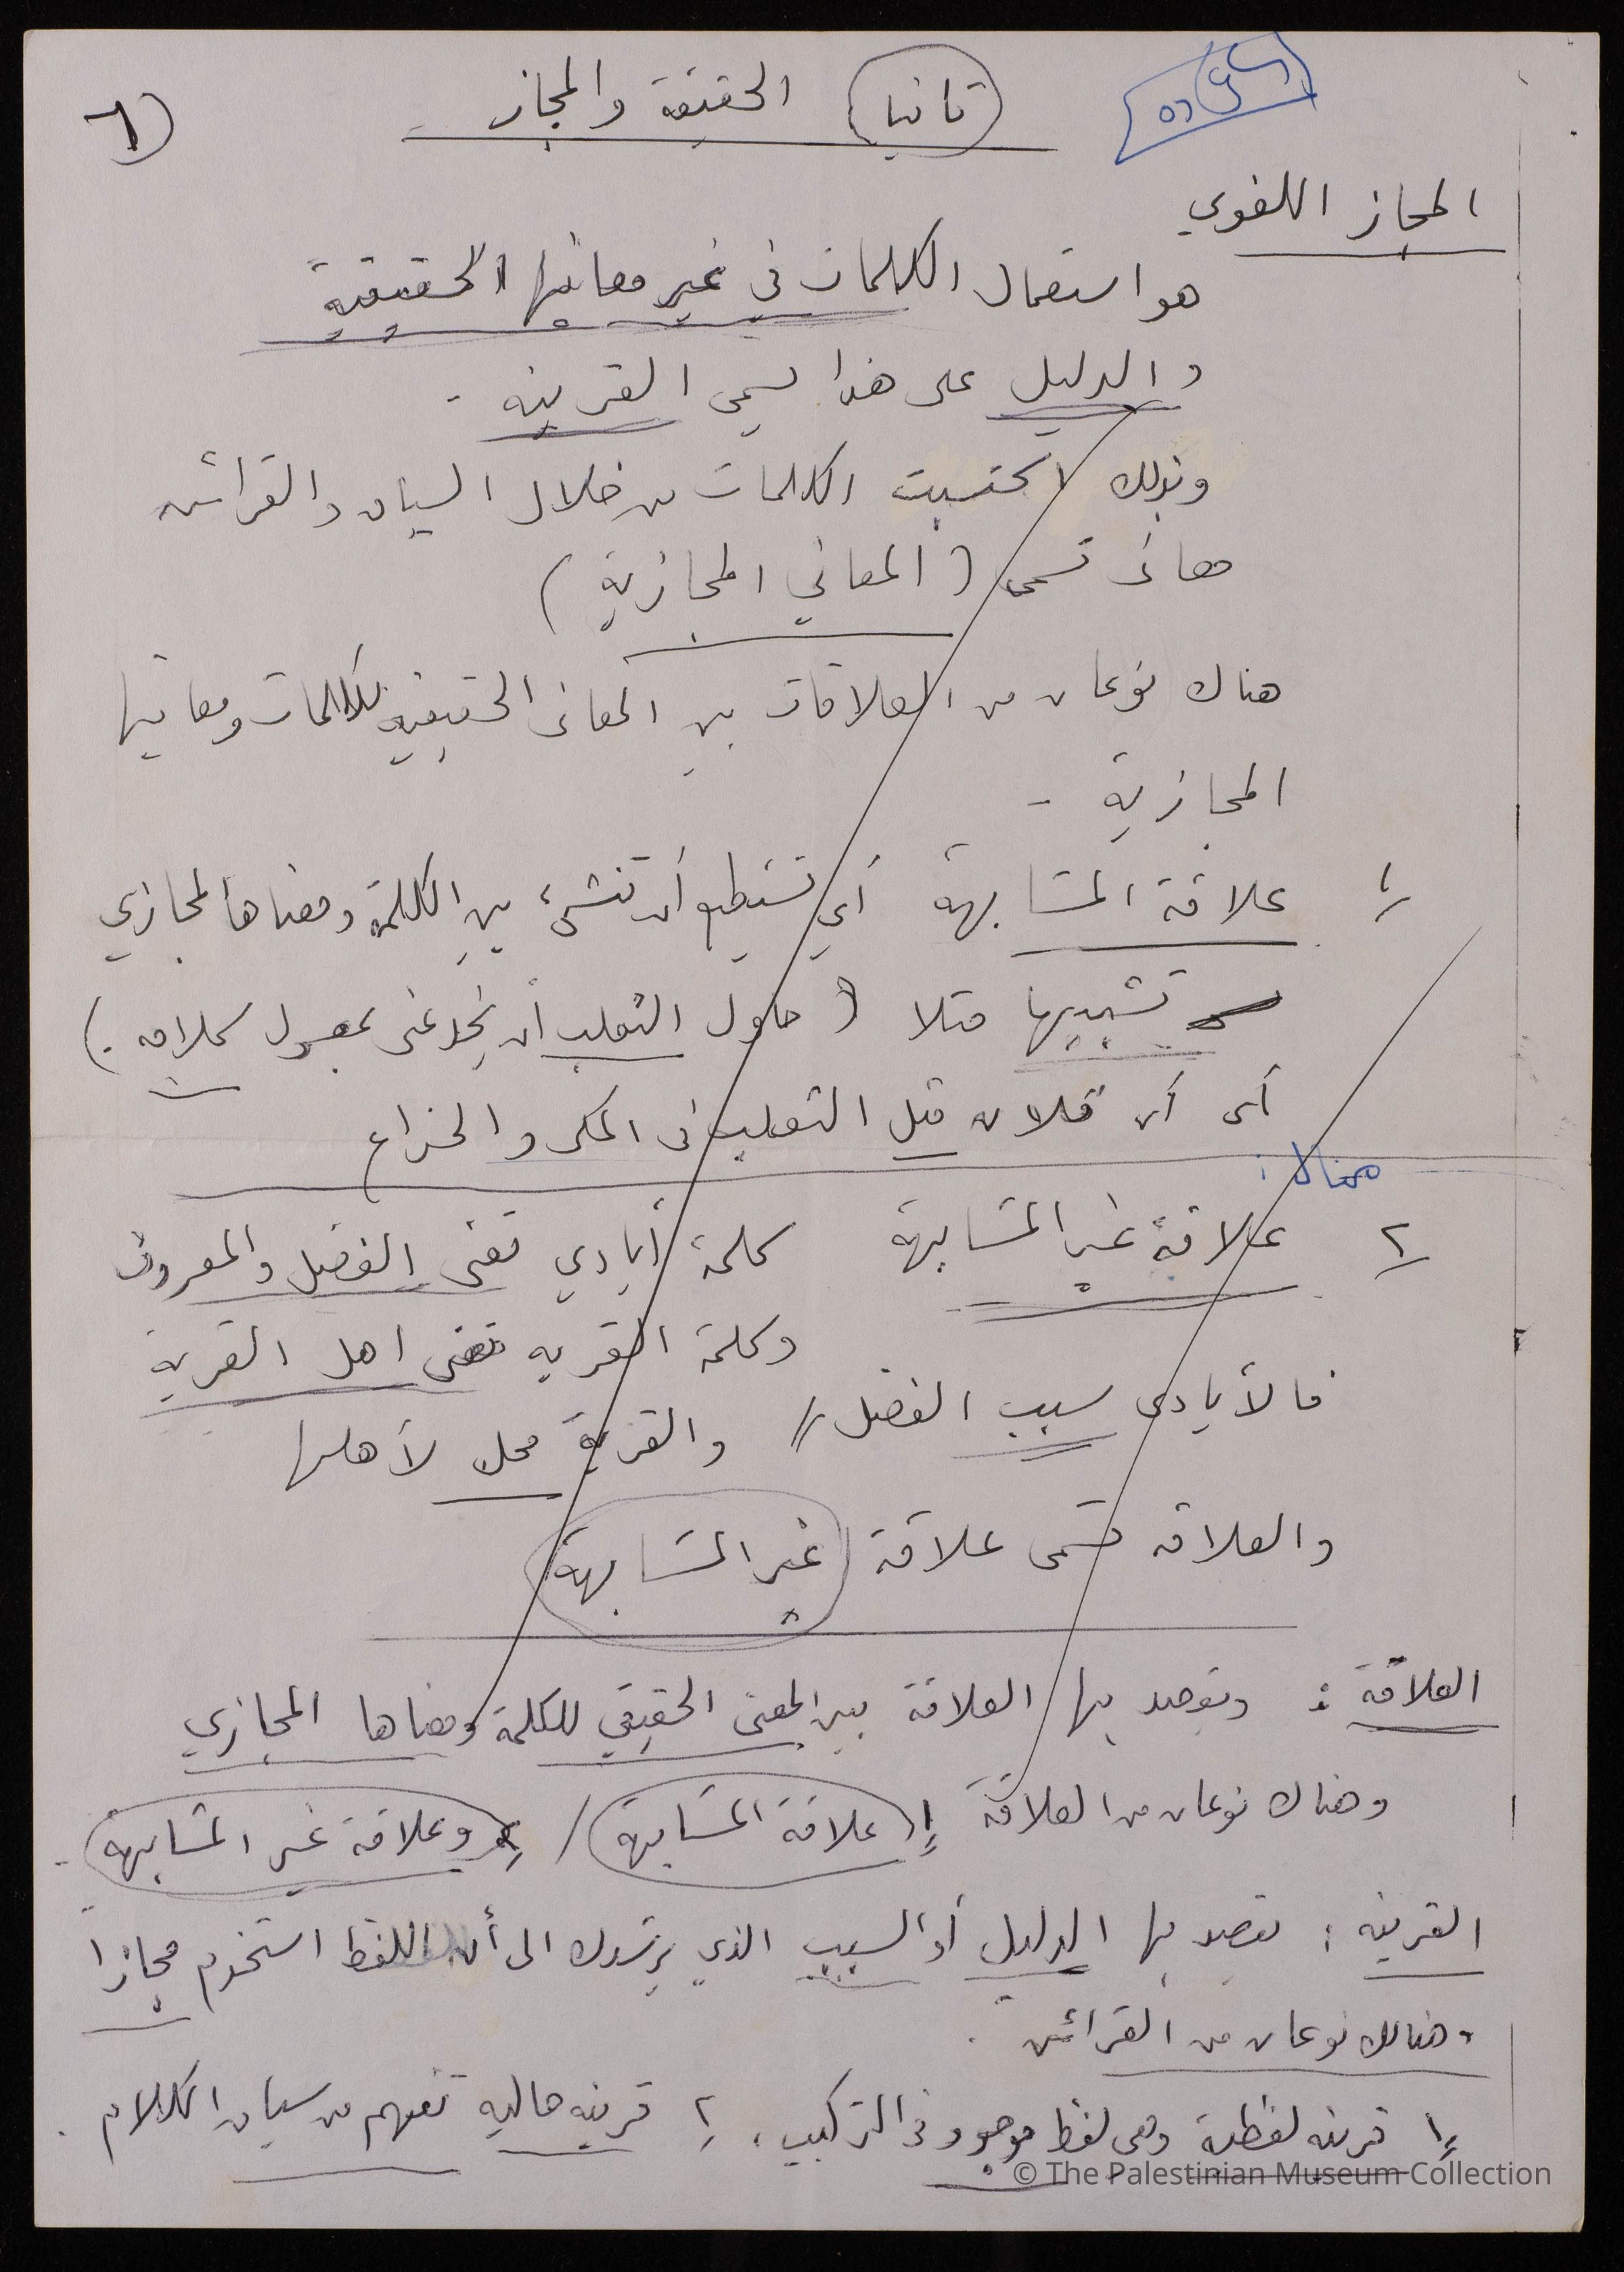 ثانيا الحقيقة والمجاز
(٦
المجاز اللغوي
هو استعمال الكلمات في غير معانيها الحقيقية
والدليل على هذا يسمى القرينه .
وبذلك اكتسبت الكلمات من خلال السياق والقرائن
معانى تسمى (المعاني المجازية)
هناك نوعان من العلاقات بين المعانى الحقيقيه للكلمات ومعانيها
المجازية .
١/ علاقة المشابهة أي تستطيع أن تنشىء بين الكلمة ومعناها المجازي
تشبيها مثلا (حاول الثعلب أن يخدعنى بمعسول كلامه .)
أى أن فلان مثل الثعلب فى المكر والخداع
هناك :
٢/ علاقة غير المشابهة كلمة أيادي تعنى الفضل والمعروف
وكلمة القريه تعنى اهل القرية
فالأيادى سبب الفضل // والقرية محل لأهلها
والعلاقه تسمى علاقة (غير المشابهة)
العلاقة : ويقصد بها العلاقة بين المعنى الحقيقي للكلمة ومعناها المجازي
وهناك نوعان من العلاقة ١/ علاقة المشابهة / ٢/ وعلاقة غير المشابهة .
القرينه : يقصد بها الدليل أو السبب الذي يرشدك الى أن اللفظ استخدم مجازا
وهنالك نوعان من القرائن .
١/ قرينه لفظية وهى لفظ موجود فى التركيب ، ٢/ قرينه حاليه تفهم من سياق الكلام .
© The Palestinian Museum Collection